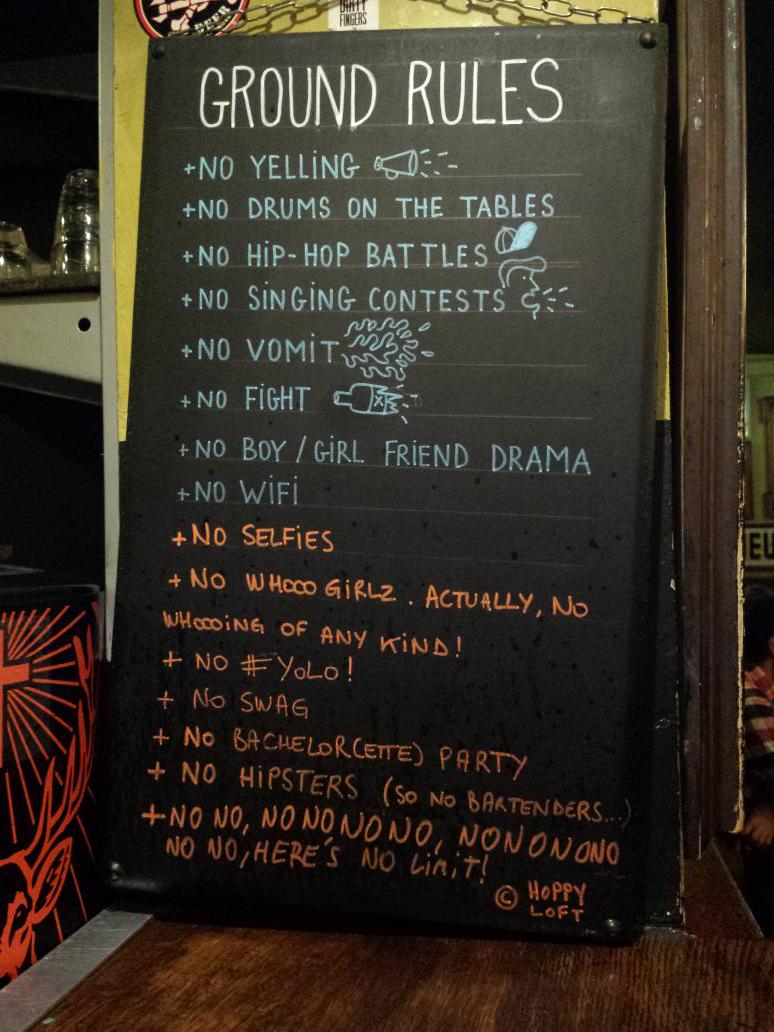 BEER
DIRTY
FINGERS
GROUND RULES
+NO YELLING
+NO DRUMS ON THE TABLES
+NO HIP-HOP BATTLES
+NO SINGING CONTESTS
+NO VOMIT
+NO FIGHT
+NO BOY/GIRL FRIEND DRAMA
+NO WIFI
+NO SELFIES
+NO WHOOO GIRLZ. ACTUALLY, NO
WHOOOING OF ANY KIND!
+ NO #YOLO!
+ NO SWAG
+ NO BACHELOR(ETTE) PARTY
+ NO HIPSTERS (SO NO BARTENDERS...)
+NO NO, NO NO NO NO, NO NO NO NO
NO NO, HERE'S NO LIMIT!
© HOPPY
LOFT
EU